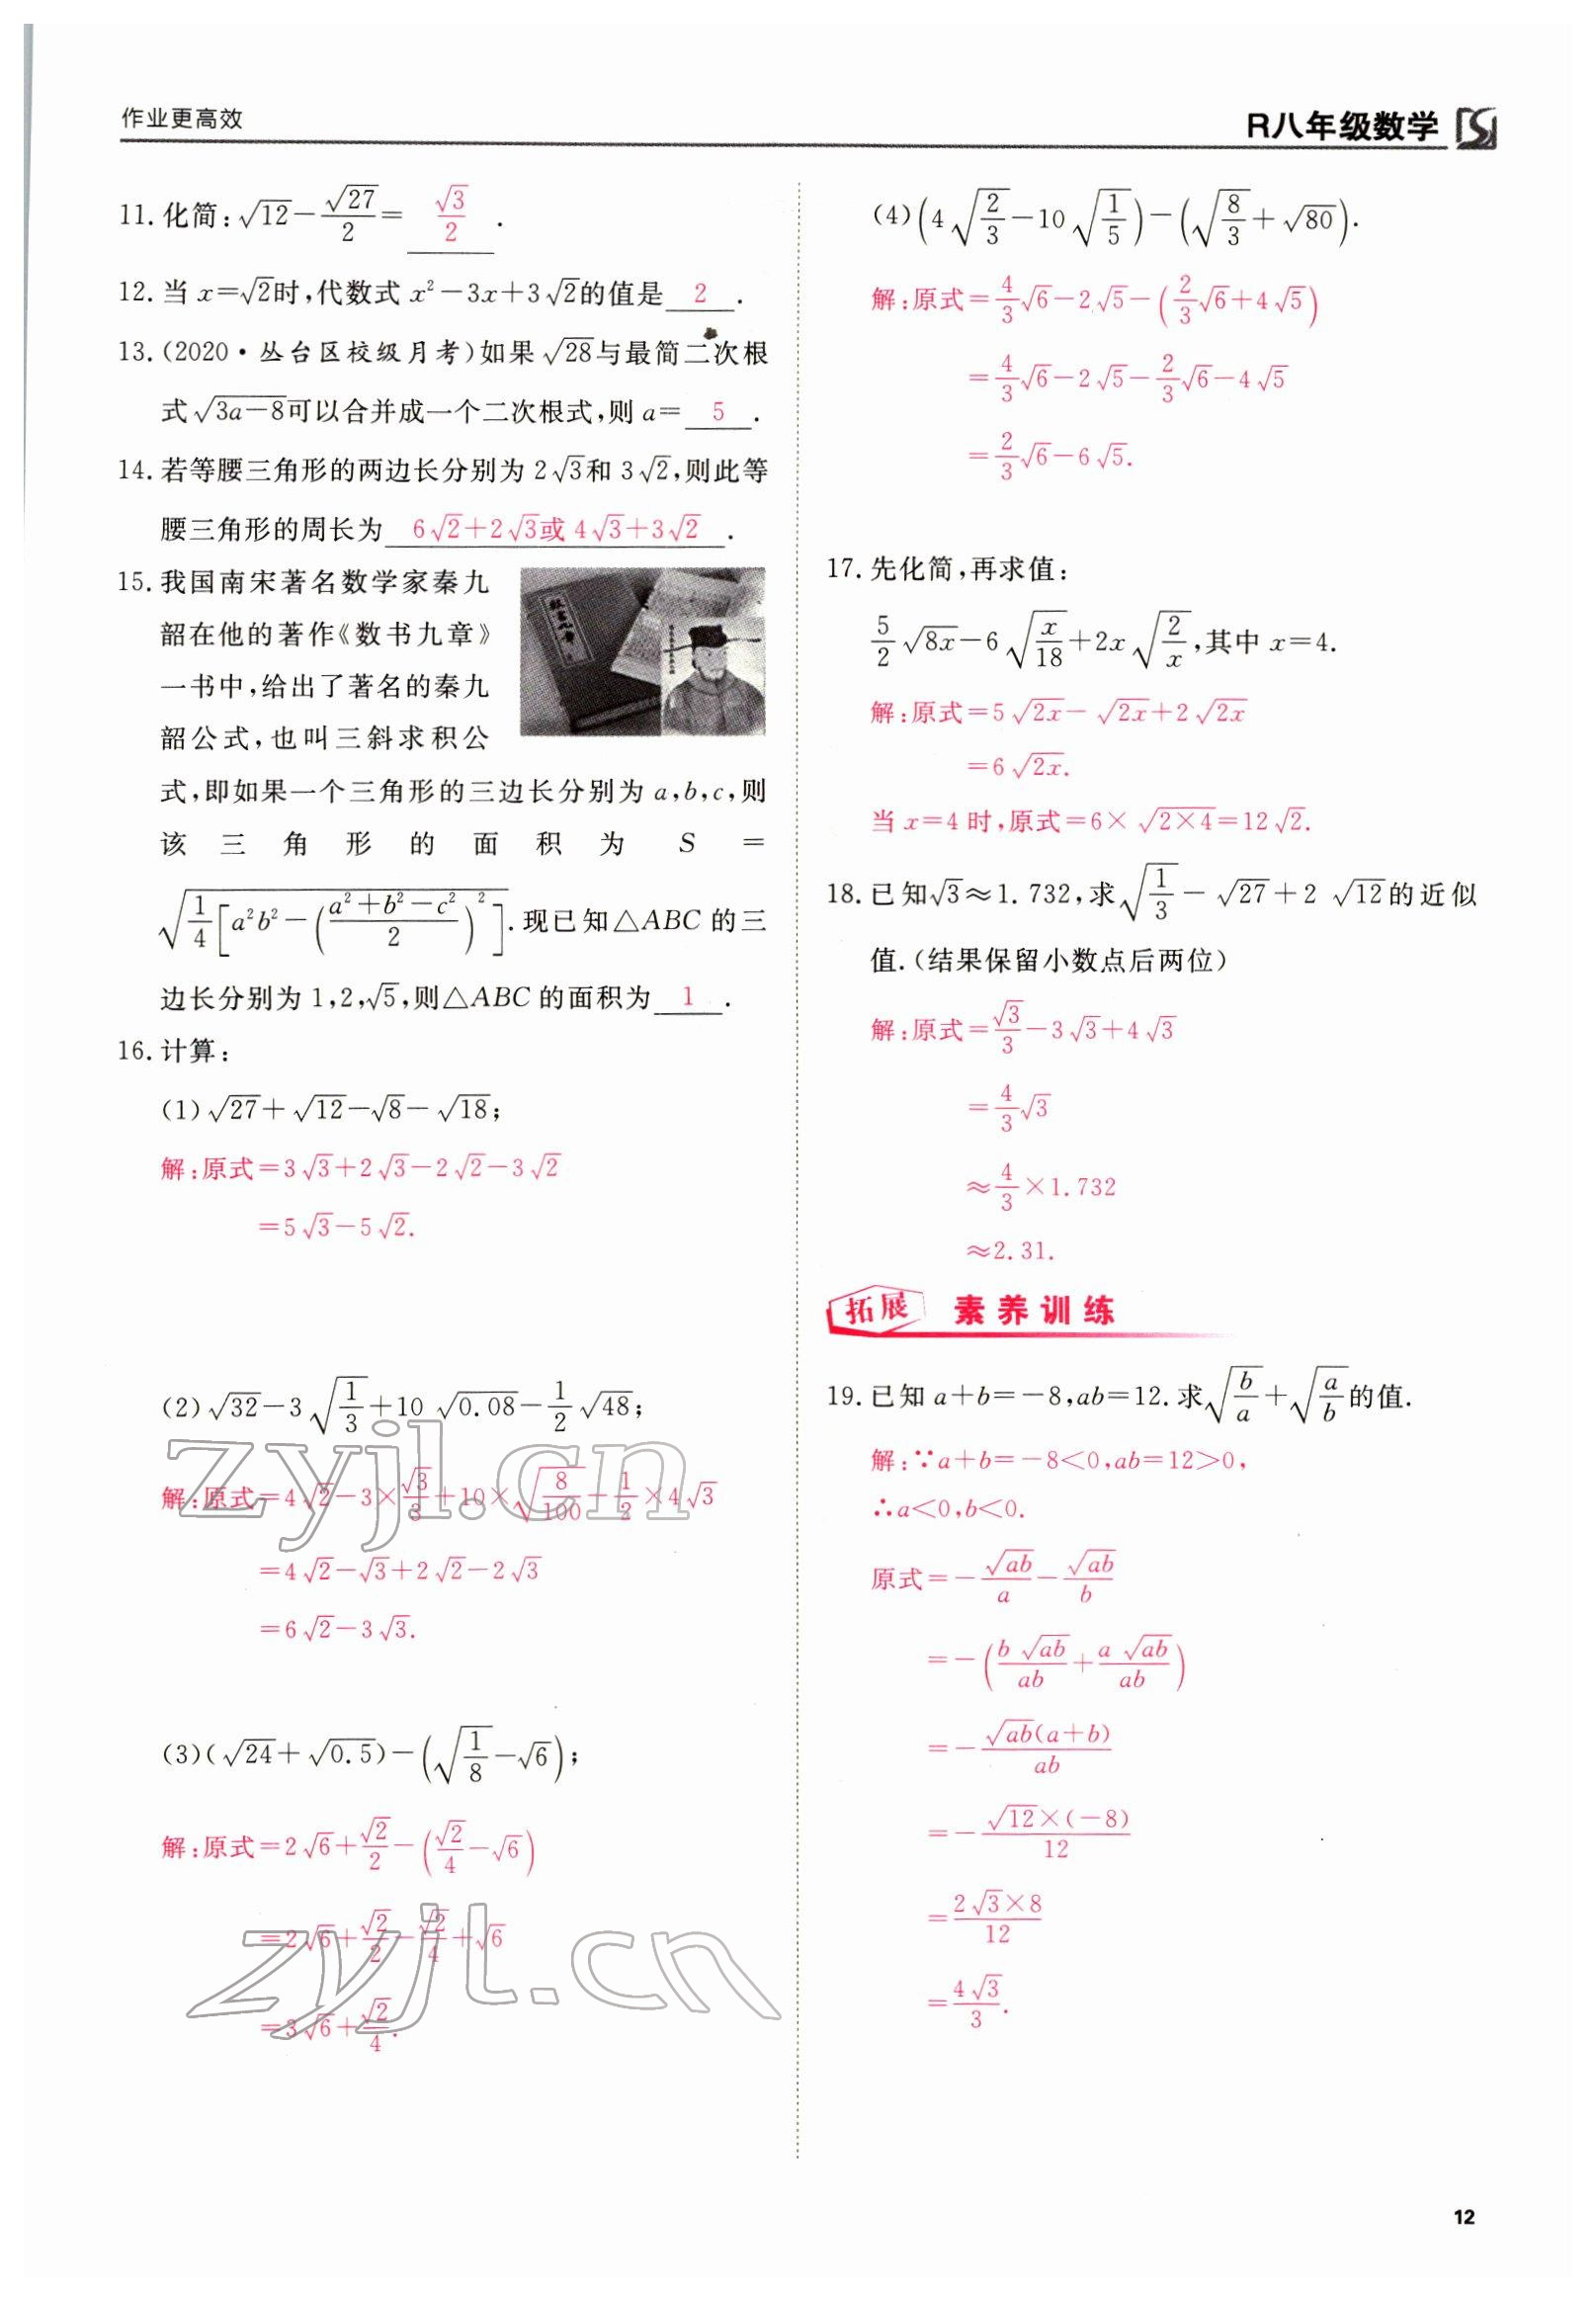 作业更高效
R八年级数学
11. 化简:√12−√27/2= √3/2 .
12. 当 x=√2时,代数式 x²−3x+3√2的值是 2 .
13. (2020·丛台区校级月考)如果√28与最简二次根
式√(3a−8)可以合并成一个二次根式,则 a= 5 .
14. 若等腰三角形的两边长分别为 2√3和 3√2,则此等
腰三角形的周长为 6√2+2√3或 4√3+3√2 .
15. 我国南宋著名数学家秦九
韶在他的著作《数书九章》
一书中,给出了著名的秦九
韶公式,也叫三斜求积公
式,即如果一个三角形的三边长分别为 a,b,c,则
该三角形的面积为 S=
√(1/4[a²b²−((a²+b²−c²)/2)²]).现已知△ABC 的三
边长分别为 1,2,√5,则△ABC 的面积为 1 .
16. 计算:
(1)√27+√12−√8−√18;
解:原式=3√3+2√3−2√2−3√2
=5√3−5√2.
(2)√32−3√(1/3)+10√0.08−1/2√48;
解:原式=4√2−3×√3/3+10×√(8/100)−1/2×4√3
=4√2−√3+2√2−2√3
=6√2−3√3.
(3)(√24+√0.5)−(√(1/8)−√6);
解:原式=2√6+√2/2−(√2/4−√6)
=2√6+√2/2−√2/4+√6
=3√6+√2/4.
(4)(4√(2/3)−10√(1/5))−(√(8/3)+√80).
解:原式=4/3√6−2√5−(2/3√6+4√5)
=4/3√6−2√5−2/3√6−4√5
=2/3√6−6√5.
17. 先化简,再求值:
5/2√(8x)−6√(x/18)+2x√(2/x),其中 x=4.
解:原式=5√(2x)−√(2x)+2√(2x)
=6√(2x).
当 x=4 时,原式=6×√(2×4)=12√2.
18. 已知√3≈1.732,求√(1/3)−√27+2√12的近似
值.(结果保留小数点后两位)
解:原式=√3/3−3√3+4√3
=4/3√3
≈4/3×1.732
≈2.31.
拓展 素养训练
19. 已知 a+b=−8,ab=12. 求√(b/a)+√(a/b)的值.
解:∵a+b=−8<0,ab=12>0,
∴a<0,b<0.
原式=−√(ab)/a−√(ab)/b
=−(b√(ab)/ab+a√(ab)/ab)
=−√(ab)(a+b)/ab
=−√12×(−8)/12
=2√3×8/12
=4√3/3.
zyjl.cn
zyjl.cn
12